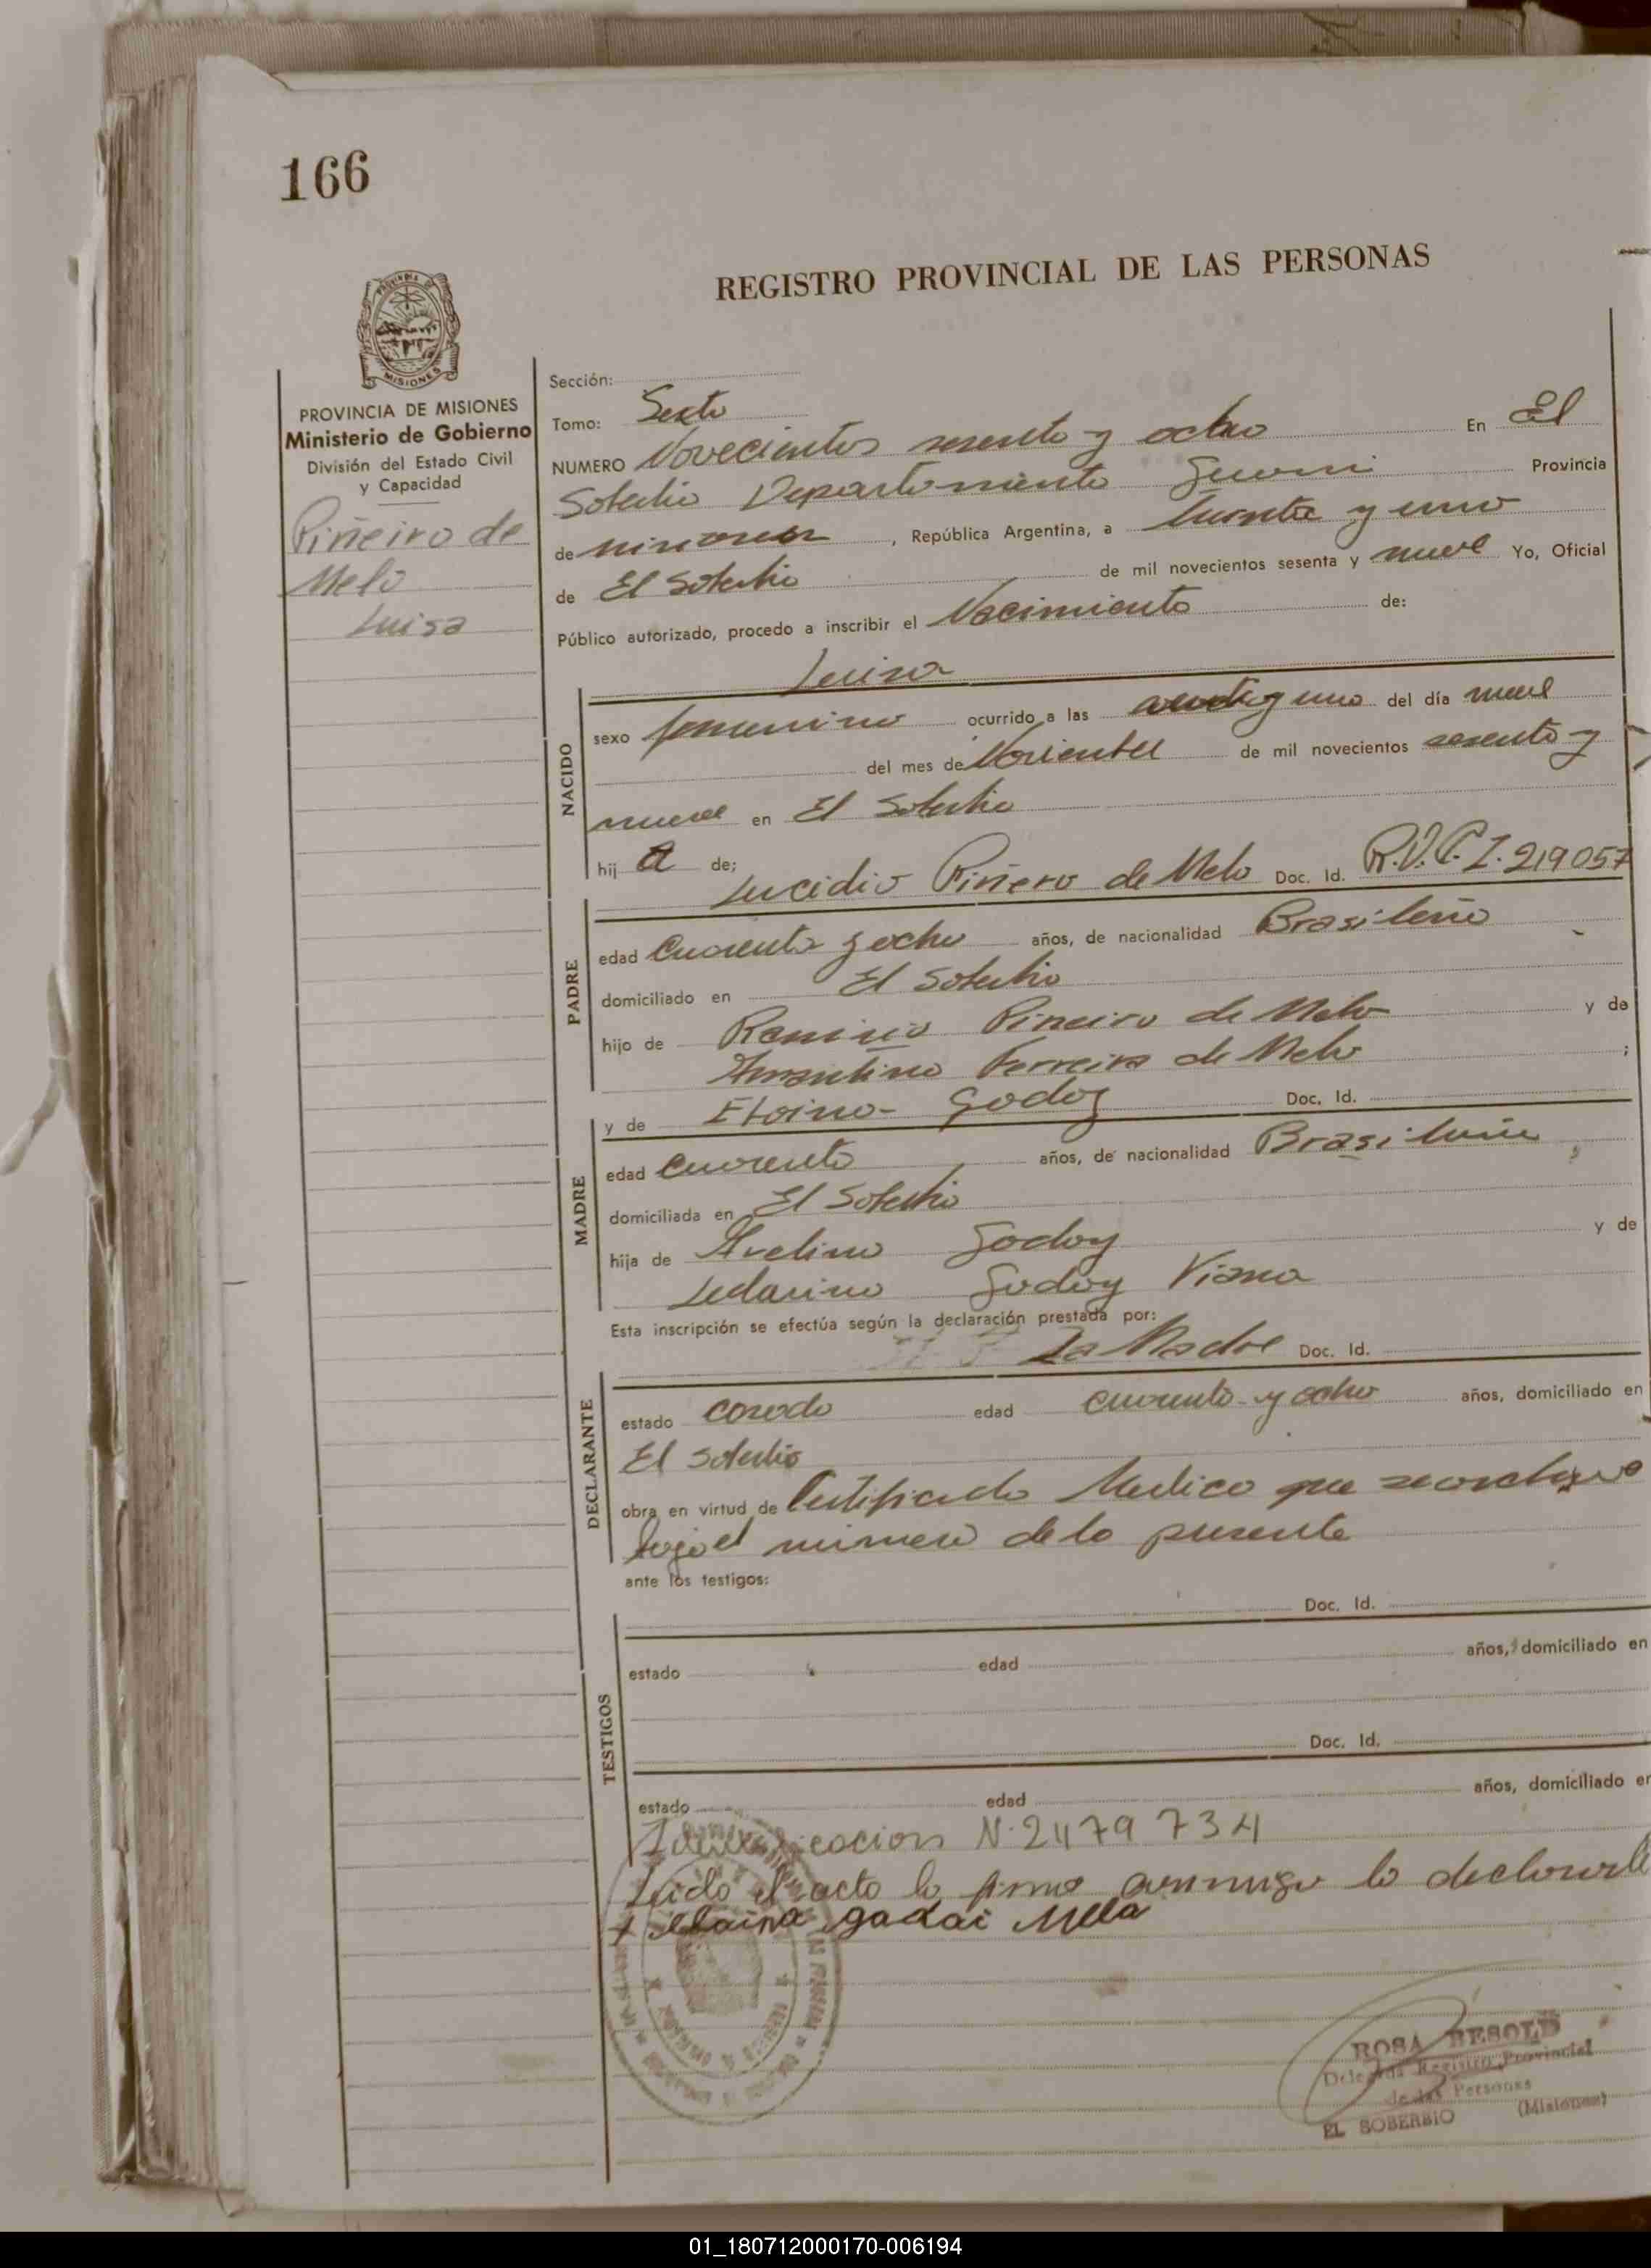 166
REGISTRO PROVINCIAL DE LAS PERSONAS
MISIONES
PROVINCIA DE MISIONES
Ministerio de Gobierno
División del Estado Civil
y Capacidad
Piñeiro de
Melo
Luisa
Sección:
Tomo: Sexto
NUMERO Novecientos sesenta y ocho En El
Soberbio Departamento Guarani Provincia
de misiones, República Argentina, a treinta y uno
de El Soberbio de mil novecientos sesenta y nueve Yo, Oficial
Público autorizado, procedo a inscribir el Nacimiento de:
Luisa
NACIDO
sexo femenino ocurrido a las y una del día nueve
del mes de Noviembre de mil novecientos sesenta y
nueve en El Soberbio
hij a de;
Lucidio Piñero de Melo Doc. Id. 219057
PADRE
edad Cuarenta y ocho años, de nacionalidad Brasileño
domiciliado en El Soberbio
hijo de Ramiro Pineiro de Melo y de
Ferreira de Melo ;
MADRE
y de Godoy Doc. Id.
edad Cuarenta años, de nacionalidad Brasileña
domiciliada en El Soberbio
hija de Avelino Godoy y de
Godoy Viana
Esta inscripción se efectúa según la declaración prestada por:
La Madre Doc. Id.
DECLARANTE
estado casado edad cuarenta y ocho años, domiciliado en
El Soberbio
obra en virtud de Certificado Medico que se archiva
bajo el numero de la presente
ante los testigos:
Doc. Id.
TESTIGOS
estado edad años, domiciliado en
Doc. Id.
estado edad años, domiciliado en
N. 2479734
Leido el acto la firma conmigo la declarante
x Elaina gadai Mela
ROSA BESOLD
Delegada Registro Provincial
de las Personas
EL SOBERBIO (Misiones)
01_180712000170-006194